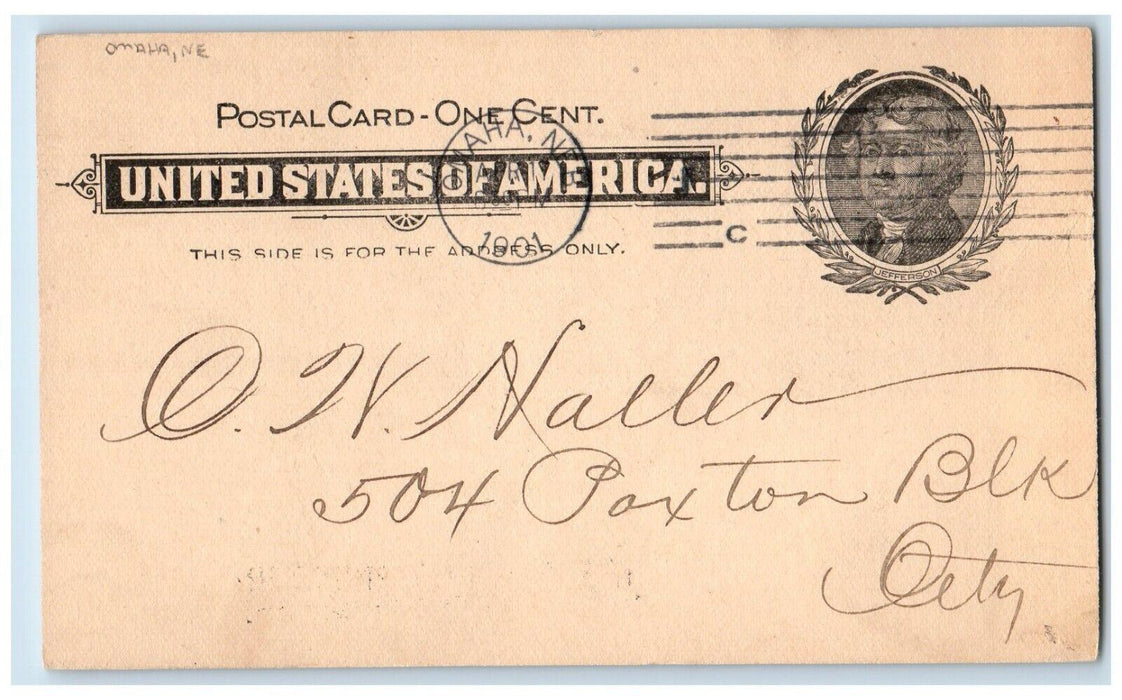 OMAHA, NE
POSTAL CARD - ONE CENT.
UNITED STATES OF AMERICA.
THIS SIDE IS FOR THE ADDRESS ONLY.
OMAHA, NEB
1901
C
JEFFERSON
O. W. Haller
504 Paxton Blk
City